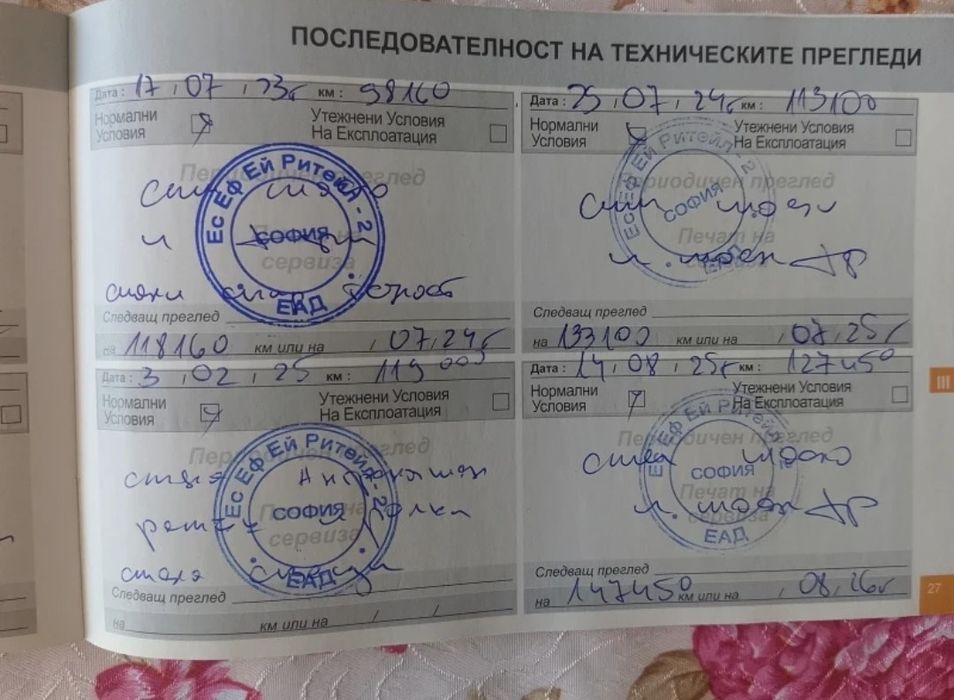 ПОСЛЕДОВАТЕЛНОСТ НА ТЕХНИЧЕСКИТЕ ПРЕГЛЕДИ
Дата : 17 , 07 , 23г км : 98160
Нормални Условия
Утежнени Условия На Експлоатация
Периодичен преглед
Печат на сервиза
Ес Еф Ей Ритейл - 2
СОФИЯ
ЕАД
Следващ преглед
на 118160 км или на , 07, 24г
Дата : 25 , 07 , 24г км : 113100
Нормални Условия
Утежнени Условия На Експлоатация
Периодичен преглед
Печат на сервиза
Ес Еф Ей Ритейл - 2
СОФИЯ
ЕАД
Следващ преглед
на 133100 км или на , 07, 25г
Дата : 3 , 02 , 25 км : 119000
Нормални Условия
Утежнени Условия На Експлоатация
Периодичен преглед
Печат на сервиза
Ес Еф Ей Ритейл - 2
СОФИЯ
ЕАД
Следващ преглед
на км или на / /
Дата : 14 , 08 , 25г км : 127450
Нормални Условия
Утежнени Условия На Експлоатация
Периодичен преглед
Печат на сервиза
Ес Еф Ей Ритейл - 2
СОФИЯ
ЕАД
Следващ преглед
на 147450 км или на , 08, 26г
III
27